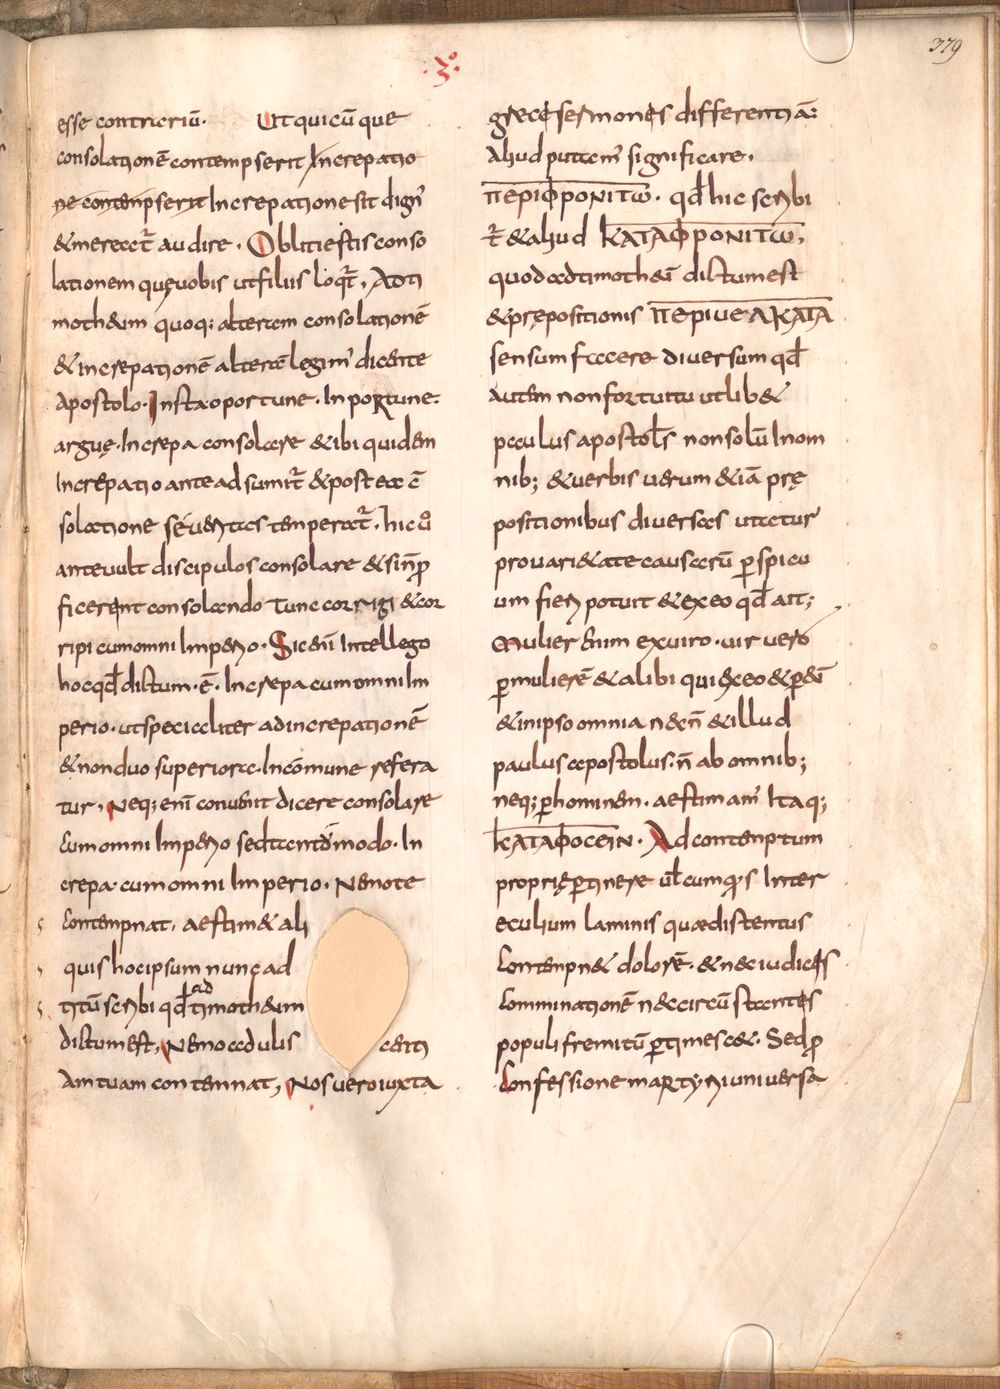 379
esse contrariū. Ut quicū que
consolationē contempserit increpatio
ne contempserit increpatione sit dign'
& merecet̄ audire. Obliti estis conso
lationem quę vobis ut filiis loq̄t, Ad ti
motheum quoq; alteram consolationē
& increpationē alterā legim' dicente
apostolo. Insta oportune. Inportune.
arguę. Increpa consolare & ibi quidem
increpatio ante adsumit̄ & postea cō
solatione seueritas temperat̄. hic u°
ante vult discipulos consolare & si n̄ p̄
ficerent consolando tunc corrigi & cor
ripi cum omni imperio. Sic enī intellego
hoc qd̄ dictum. ē. Increpa cum omni im
perio. ut specialiter ad increpationē
& non duo superiora. In cōmune refera
tur, Neq; enī convenit dicere consolare
cum omni imperio sed tantūmodo. In
crepa. cum omni imperio. Nemo te
contempnat, aestim& ali
quis hoc ipsum nunc ad
titū scribi qd̄ ad timotheum
dictum est, Nemo adulis centi
am tuam contennat, Nos vero iuxta
gręcę sermonis differentiā:
Aliud putam' significare,
ΠΕΡΙΦΡΟΝΙΤω. qd̄ hic scribi
t̄ & aliud ΚΑΤΑΦΡΟΝΙΤω,
quod ad timotheū dictum est
& prępositionis ΠΕΡΙ VEΛ ΚΑΤΑ
sensum facere diversum qd̄
autem non fortuitu ut lib&
paulus apostol's non solū in om
nib; & verbis uerum &iā prę
positionibus diversas utatur
pro vari&ate causarū p̄spicu
um fieri potuit & ex eo qd̄ ait;
Mulier enim ex viro. vir vero
p̄ mulierē & alibi qui ex eo & p̄ eū
& in ipso omnia nec n̄ & illud
paulus apostolus. n̄ ab omnib;
neq; p̄ hominem. aestimam' Itaq;
ΚΑΤΑΦΟCEIN. Ad contemptum
proprię p̄tinere ul̄ cum q̄s inter
eculium laminis quæ distentus
contempn& dolorē. & nec iudicis
comminationē nec circūstantis
populi fremitū p̄timesc&. Sed p̄
confessione martyrii universa